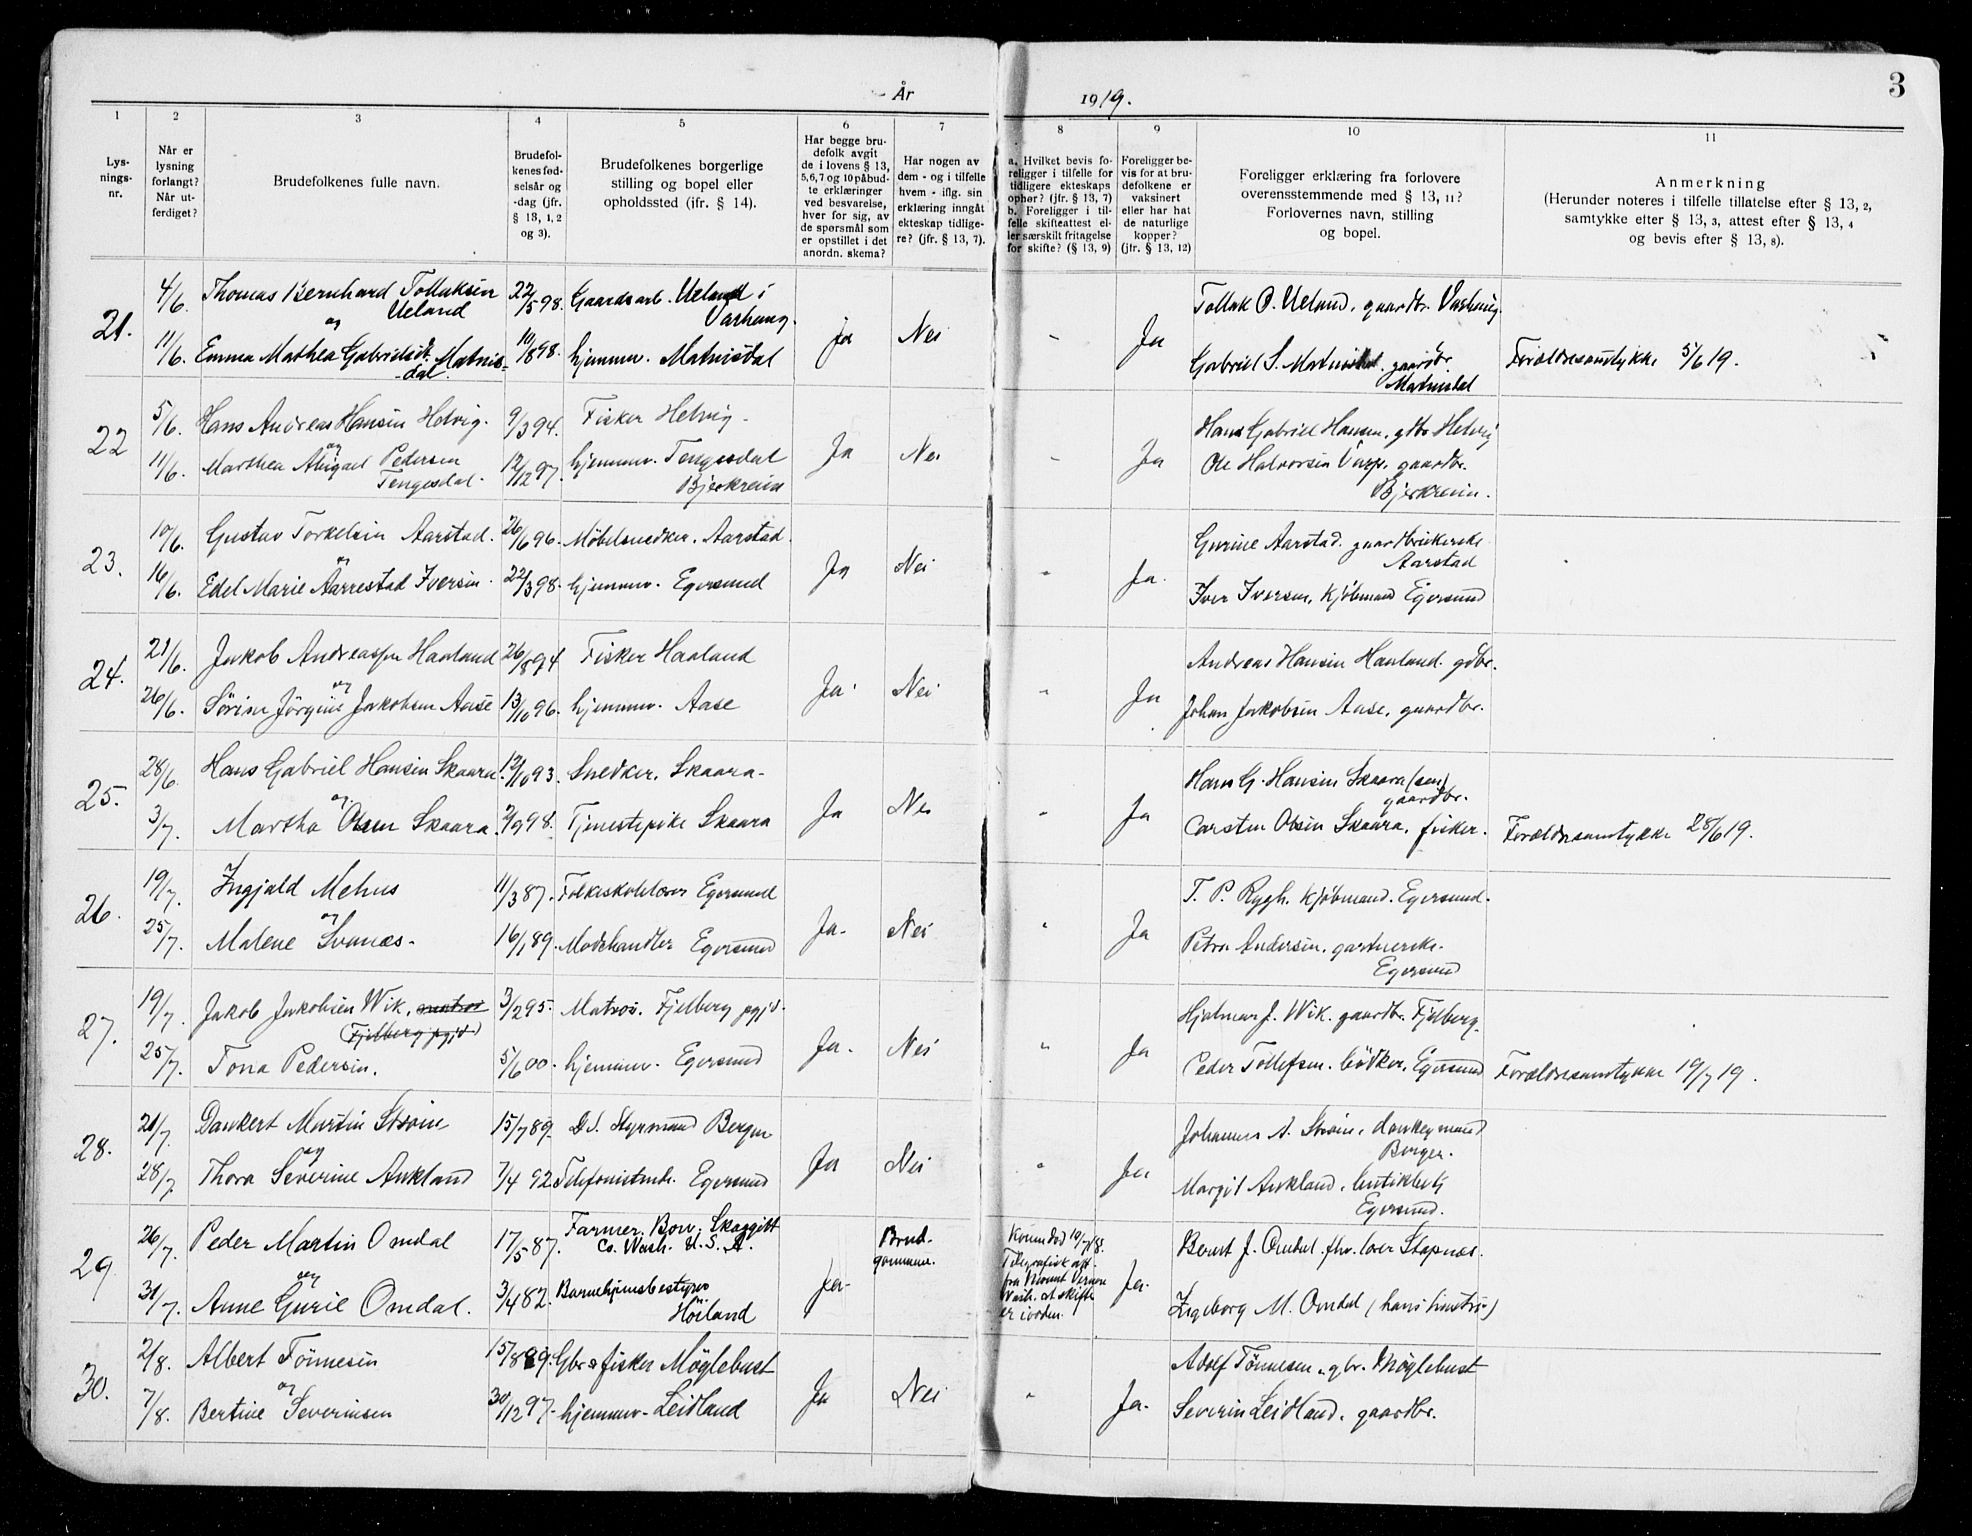 År 1919.
3
1 2 3 4 5 6 7 8 9 10 11
Lys-
nings-
nr.
Når er
lysning
forlangt?
Når ut-
ferdiget?
Brudefolkenes fulle navn.
Brudefol-
kenes fød-
selsår og
-dag (jfr.
§ 13, 1, 2
og 3).
Brudefolkenes borgerlige
stilling og bopel eller
opholdssted (ifr. § 14).
Har begge bru-
defolk avgit
de i lovens § 13,
5,6,7 og 10 påbud-
te erklæringer
ved besvarelse,
hver for sig, av
de spørsmål som
er opstillet i det
anordn. skema?
Har nogen av
dem - og i tilfelle
hvem - iflg. sin
erklæring inngåt
ekteskap tidlige-
re? (jfr. § 13, 7).
a. Hvilket bevis fo-
religger i tilfelle for
tidligere ekteskaps
ophør? (jfr. § 13, 7)
b. Foreligger i til-
felle skifteattest el-
ler særskilt fritagelse
for skifte? (§ 13, 9)
Foreligger be-
vis for at bru-
defolkene er
vaksinert
eller har hat
de naturlige
kopper?
(jfr. § 13, 12)
Foreligger erklæring fra forlovere
overensstemmende med § 13, 11?
Forlovernes navn, stilling
og bopel.
Anmerkning
(Herunder noteres i tilfelle tillatelse efter § 13, 2,
samtykke efter § 13, 3, attest efter § 13, 4
og bevis efter § 13, 8).
21.
4/6. Thomas Bernhard Tollaksen 22/5 98. Gaardsarb. Ueland i
Ueland Varhaug.
og
11/6. Emma Mathea Gabrielsdt. Matnis- 10/8 98. hjemmev. Matnisdal
dal.
Ja Nei - Ja
Tollak O. Ueland, gaardbr. Varhaug.
Gabriel S. Matnisdal. gaardbr.
Matnisdal
Forældresamtykke 5/6 19.
22
5/6. Hans Andreas Hansen Helvig. 9/3 94. Fisker Helvig.
og
11/6. Marthea Abigael Pedersen 12/12 97. hjemmev. Tengesdal
Tengesdal. Bjerkreim
Ja Nei - Ja
Hans Gabriel Hansen, gdbr Helvig
Ole Halvorsen gaardbr.
Bjerkreim.
23.
10/6. Gustav Torkelsen Aarstad. 26/6 96. Møbelsnedker. Aarstad.
og
16/6. Edel Marie Aarrestad Iversen. 22/3 98. hjemmev. Egersund
Ja Nei " Ja.
Gurine Aarstad. gaardbrukerske
Aarstad
Iver Iversen, kjøbmand Egersund
24.
21/6. Jakob Andreassen Haaland 26/8 94 Fisker Haaland
og
26/6. Sørine Jørgine Jakobsen Aase 13/10 96. hjemmev. Aase
Ja. Nei " Ja
Andreas Hansen Haaland. gdbr.
Johan Jakobsen Aase, gaardbr.
25.
28/6. Hans Gabriel Hansen Skaara. 12/10 93. Snedker. Skaara.
og
3/7. Martha Olsen Skaara. 2/9 98. Tjenestepike Skaara
Ja Nei " Ja
Hans G. Hansen Skaara (sen)
gaardbr.
Carsten Olsen Skaara, fisker.
Forældresamtykke 28/6 19.
26.
19/7. Ingjald Mehus 11/3 87. Folkeskolelærer Egersund
og
25/7. Malene Svanæs. 16/1 89. Modehandler Egersund
Ja. Nei " Ja
T. P. Rygh. kjøbmand. Egersund.
Petra Andersen, gartnerske.
Egersund
27.
19/7. Jakob Jakobsen Wik, matros 3/2 95. Matros. Fjelberg pgjd.
(Fjelberg pgjd)
25/7. Tona Pedersen. 5/6 00. hjemmev. Egersund
Ja. Nei " Ja
Hjalmar J. Wik. gaardbr. Fjelberg.
Peder Tollefsen. bödker, Egersund
Forældresamtykke 19/7 19.
28.
21/7. Dankert Martin Strøm 15/7 89. D.S. Styrmand Bergen
og
28/7. Thora Severine Aukland 7/4 92. Telefonistinde. Egersund
Ja Nei " Ja
Johannes A. Strøm, donkeymand
Bergen.
Margit Aukland,
Egersund.
29
26/7. Peder Martin Omdal 17/5 87. Farmer. Bow. Skaggitt
Co. Wash. U. S. A.
og
31/7. Anne Gurie Omdal. 3/4 82. Barnehjemsbestyrer
Höiland
Ja. Brud-
gommen.
Kone död 10/7 18.
Telegrafisk att.
fra Mount Vernon
Wash. at skifte
er i orden.
Ja.
Bernt J. Omdal. fhv. lærer Stapnæs.
Ingeborg M. Omdal (hans hustru)
30.
2/8. Albert Tönnesen 15/8 89. Gbr. & fisker Möglebust
og
7/8. Bertine Severinsen 30/12 97. hjemmev. Leidland
Ja Nei " Ja.
Adolf Tönnesen. gbr. Möglebust
Severin Leidland, gaardbr.